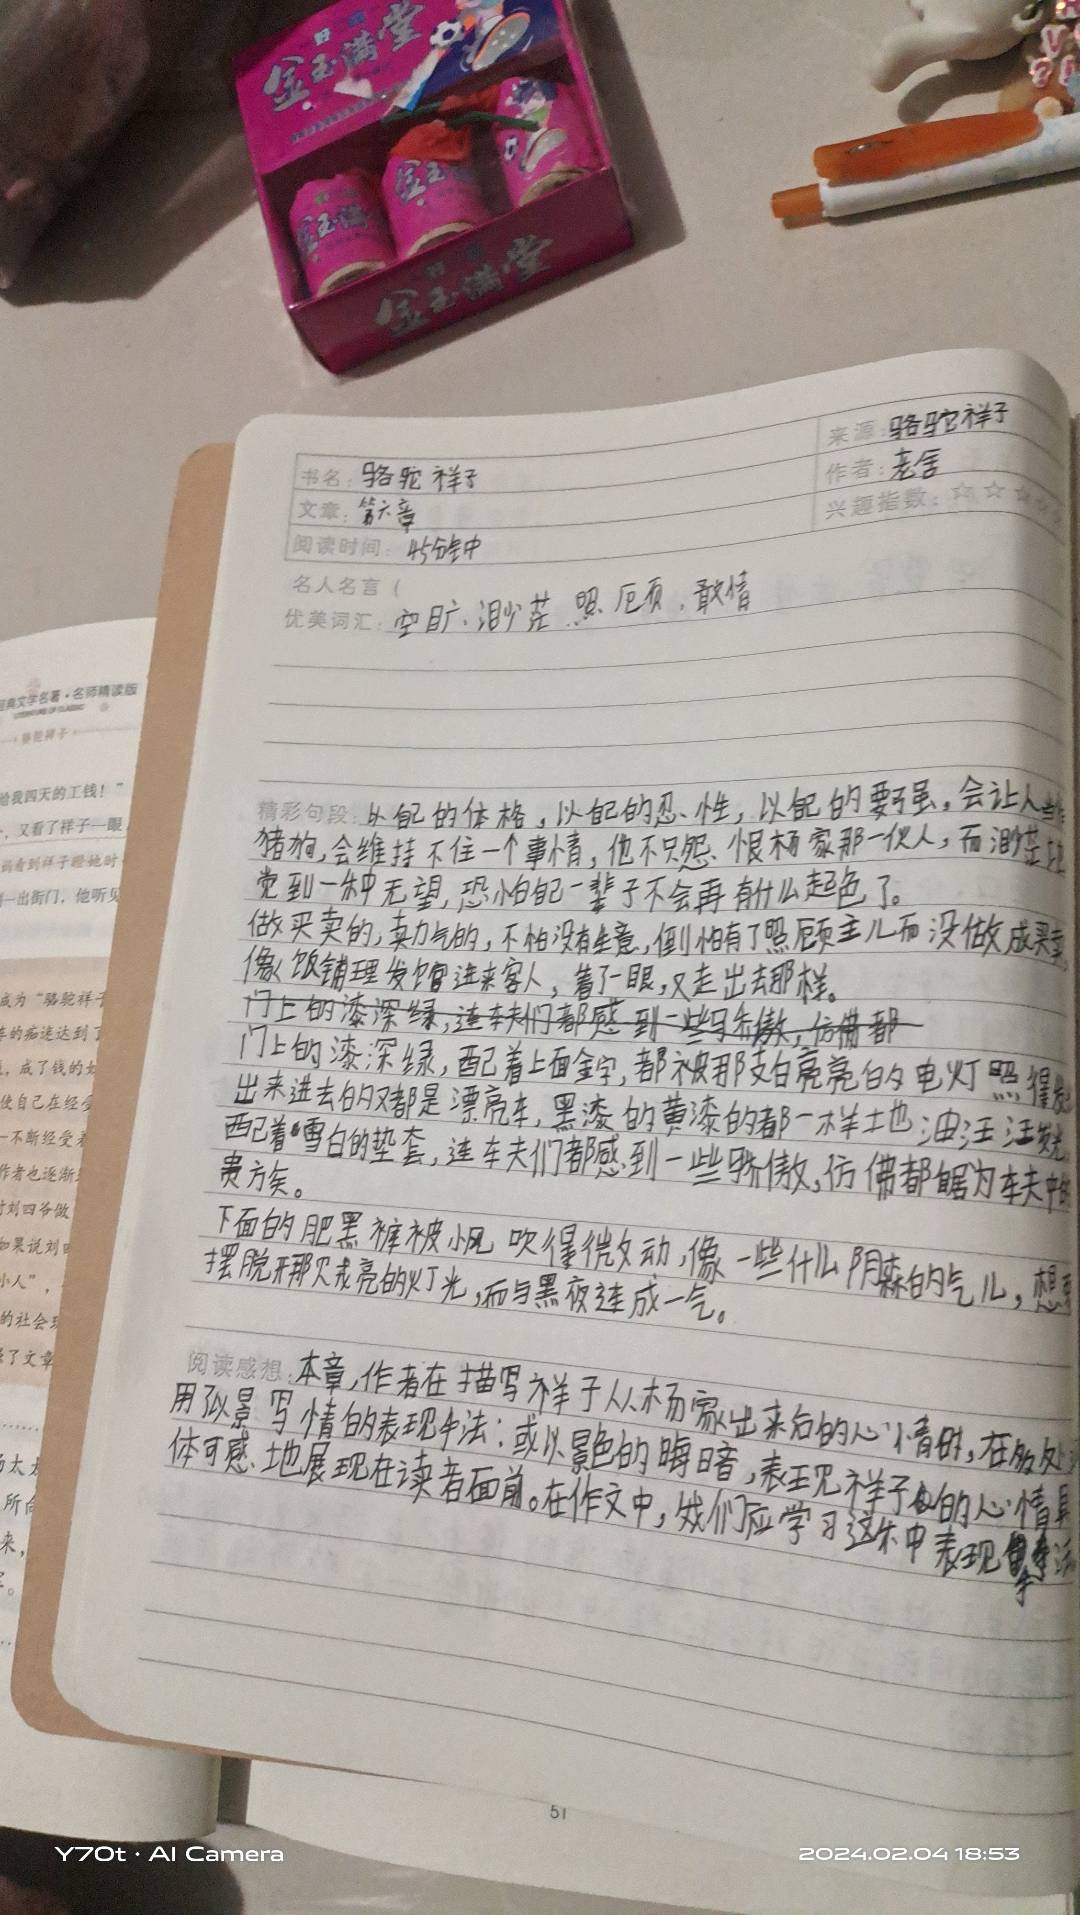 金玉满堂
金玉满
金玉
金玉满堂
书名：骆驼祥子
来源：骆驼祥子
文章：第六章
作者：老舍
阅读时间：45分钟
兴趣指数：☆☆☆☆☆
名人名言（
优美词汇：空旷、渺茫、照、厄顶、敢情
精彩句段：以自己的体格，以自己的忍性，以自己的要强，会让人当作
猪狗，会维持不住一个事情，他不只怨恨杨家那一伙人，而渺茫
觉到一种无望，恐怕自己一辈子不会再有什么起色了。
做买卖的，卖力气的，不怕没有生意，倒怕有了照顾主儿而没做成买卖，
像饭铺理发馆进来客人，看了一眼，又走出去那样。
门上的漆深绿，连车夫们都感到一些骄傲，仿佛都
门上的漆深绿，配着上面金字，都被那支白亮亮的电灯照得
出来进去的又都是漂亮车，黑漆的黄漆的都一样地油汪汪发光，
配着雪白的垫套，连车夫们都感到一些骄傲，仿佛都自居为车夫中的
贵族。
下面的肥黑裤被小风吹得微动，像一些什么阴森的气儿，想要
摆脱开那贼亮的灯光，而与黑夜连成一气。
阅读感想：本章，作者在描写祥子从杨家出来后的心情时，在多处
用以景写情的表现手法；或以景色的晦暗，表现祥子的心情具
体可感地展现在读者面前。在作文中，我们应学习这种表现手法
51
经典文学名著·名师精读版
骆驼祥子
给我四天的工钱！”
，又看了祥子一眼
妈看到祥子瞪她时
一出街门，他听见
成为“骆驼祥子
车的痴迷达到了
，成了钱的奴
使自己在经受
一不断经受着
作者也逐渐
时刘四爷做
如果说刘四
小人”，
的社会
了文章
杨太太
所
来，
Y70t · AI Camera
2024.02.04 18:53